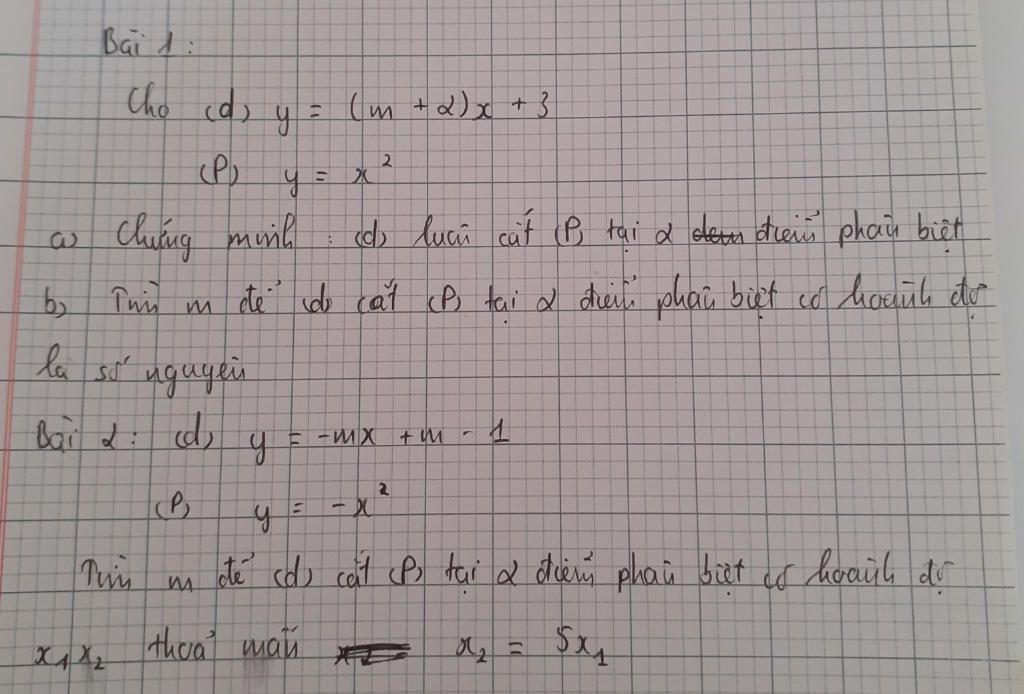 Bài 1:
Cho (d) y = (m + 2)x + 3
(P) y = x²
a) Chứng minh : (d) luôn cắt (P) tại 2 điểm phân biệt
b) Tìm m để (d) cắt (P) tại 2 điểm phân biệt có hoành độ
là số nguyên
Bài 2: (d) y = -mx + m - 1
(P) y = -x²
Tìm m để (d) cắt (P) tại 2 điểm phân biệt có hoành độ
x₁ x₂ thoả mãn x₂ = 5x₁